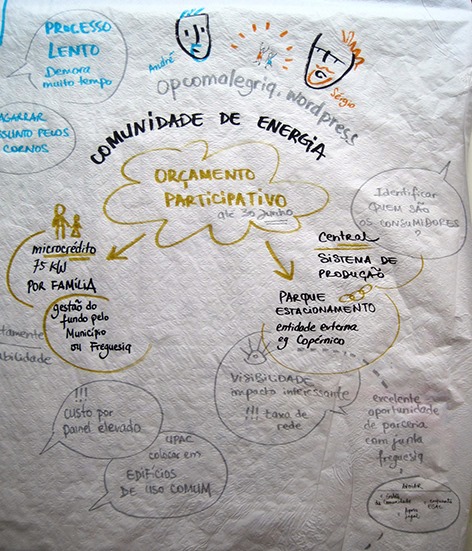 PROCESSO
LENTO
Demora
muito tempo
André
Sérgio
opcomalegria.wordpress
AGARRAR
ASSUNTO PELOS
CORNOS
COMUNIDADE DE ENERGIA
ORÇAMENTO
PARTICIPATIVO
até 30 junho
Identificar
QUEM SÃO
OS CONSUMIDORES
?
microcrédito
75 KW
POR FAMÍLIA
gestão do
fundo pelo
Município
ou Freguesia
Central
SISTEMA DE
PRODUÇÃO
PARQUE
ESTACIONAMENTO
entidade externa
eg Copérnico
VISIBILIDADE
impacto interessante
!!! taxa de
rede
!!!
CUSTO POR
Painel elevado
UPAC
colocar em
EDIFÍCIOS
DE USO COMUM
excelente
oportunidade
de parceria
com junta
freguesia
Apoio
legal